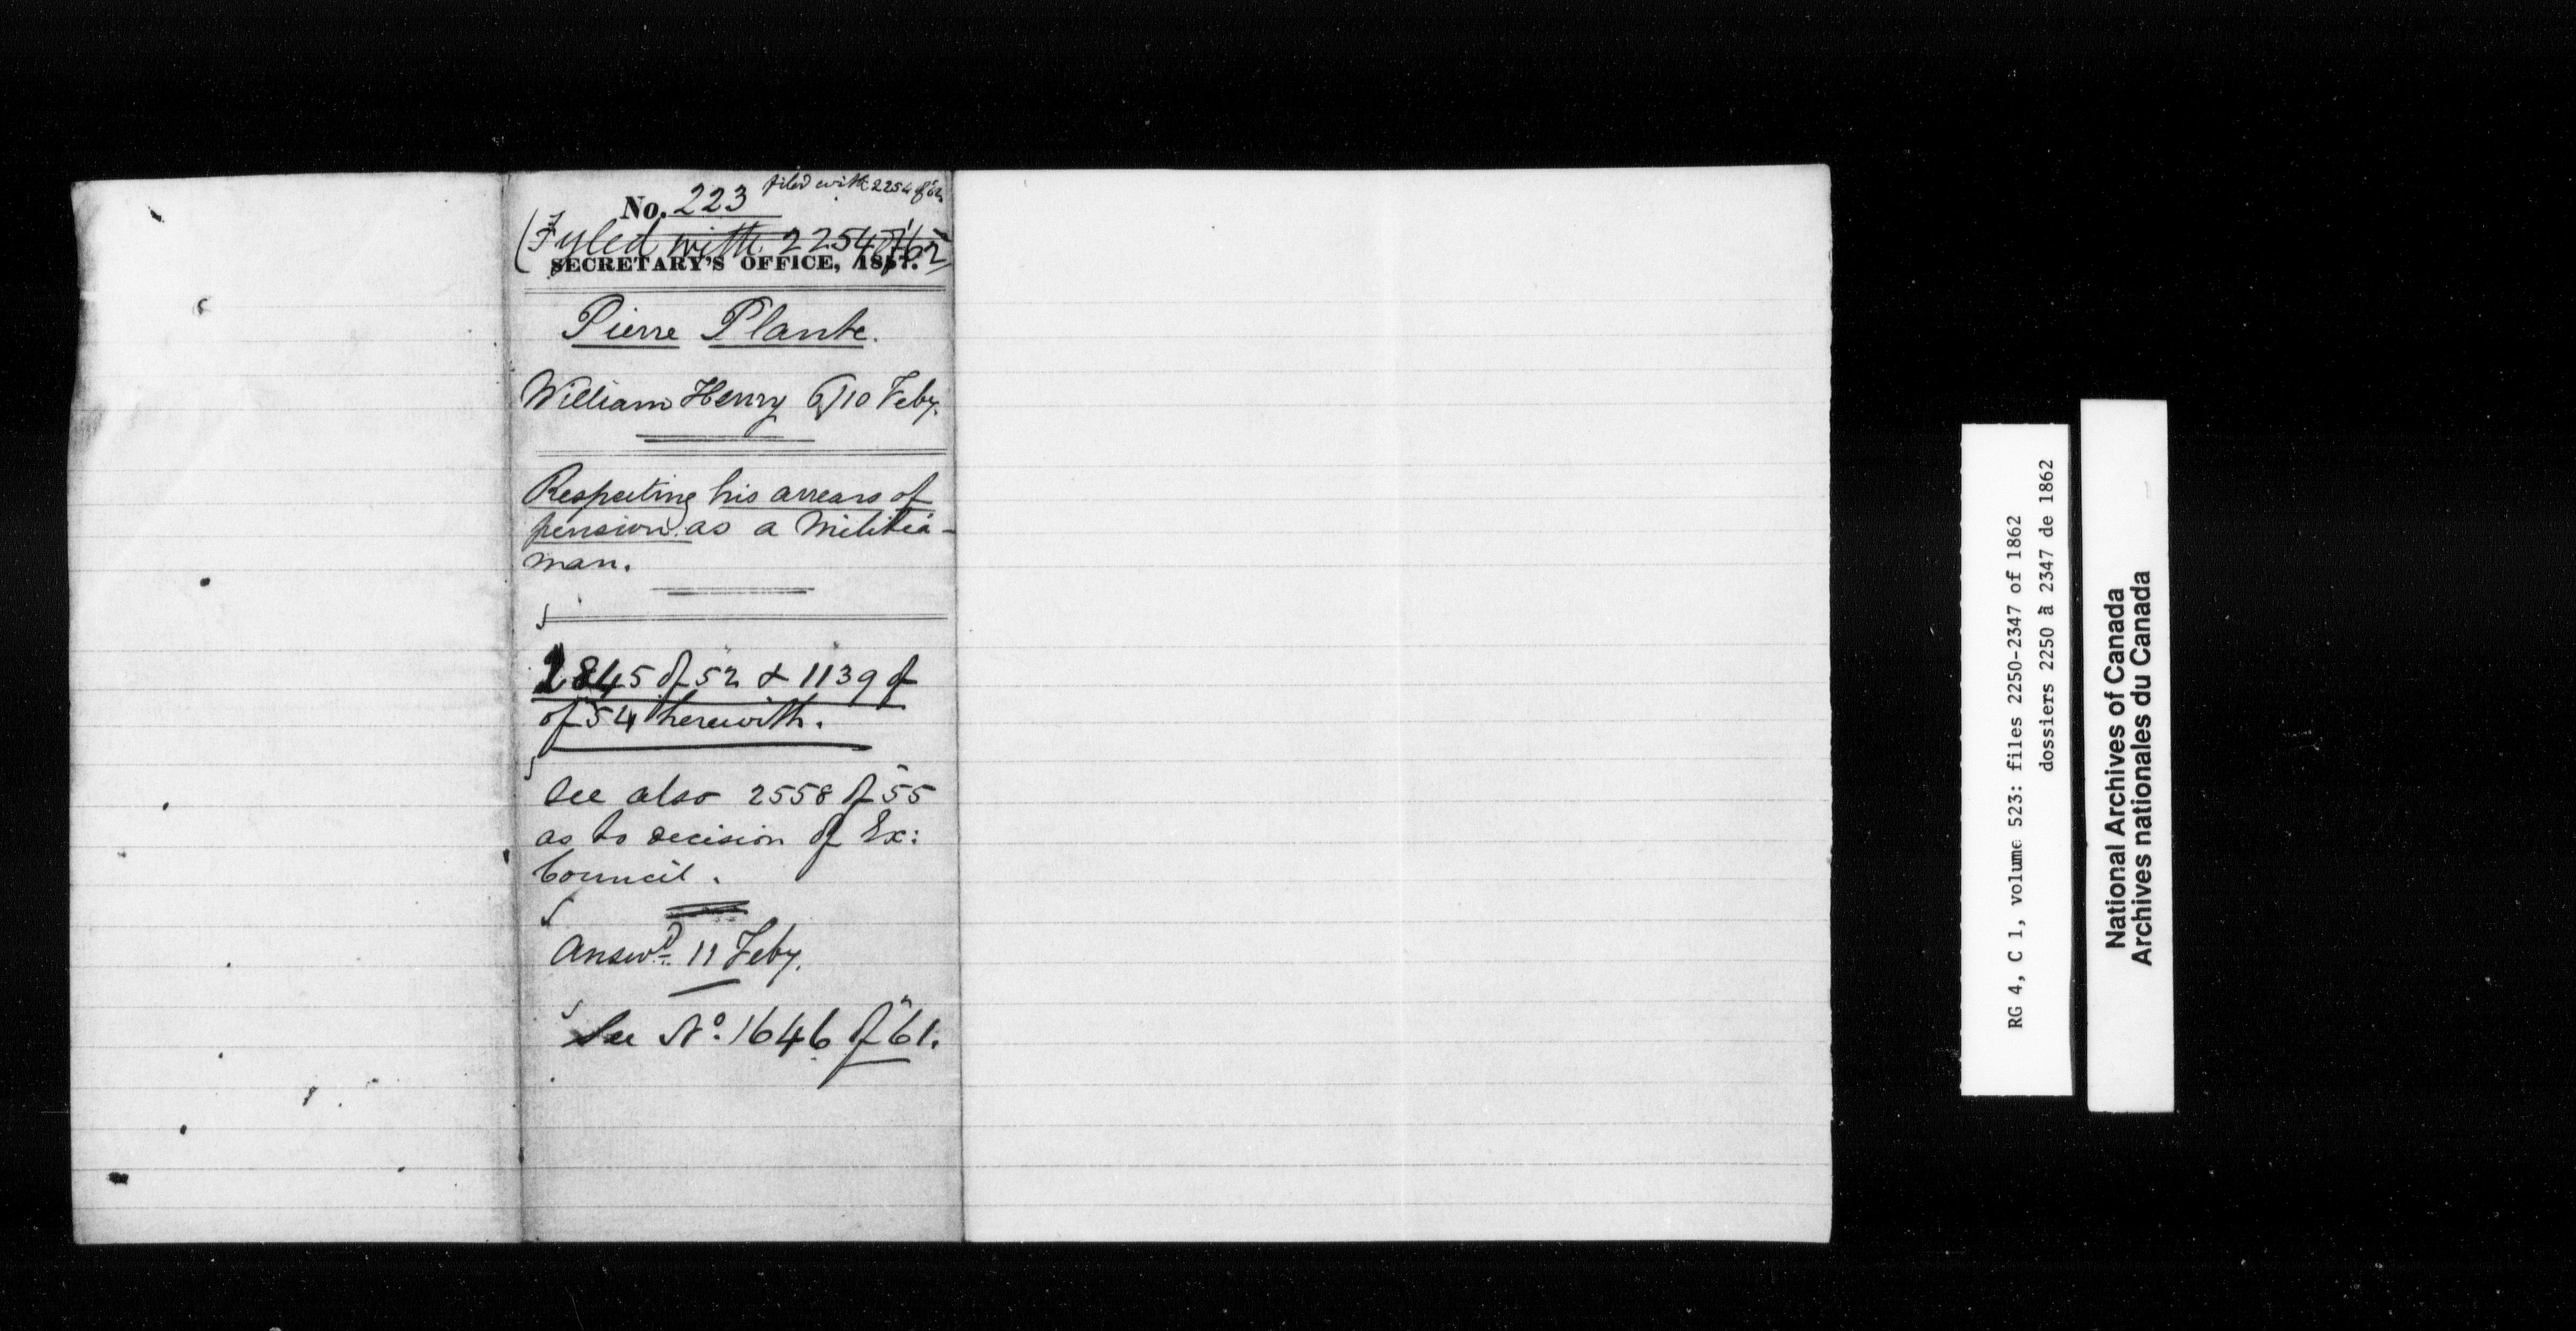 No. 223 filed with 2254 of 62
(Fyled with 2254 of 62
SECRETARY'S OFFICE, 1857.
Pierre Plante.
William Henry 6/10 Feby.
Respecting his arrears of
pension as a Militia-
man.
2845 of 52 & 1139 of
of 54 herewith.
See also 2558 of 55
as to decision of Ex:
Council.
Answd. 11 Feby.
See No. 1646 of 61.
RG 4, C 1, volume 523: files 2250-2347 of 1862
dossiers 2250 à 2347 de 1862
National Archives of Canada
Archives nationales du Canada